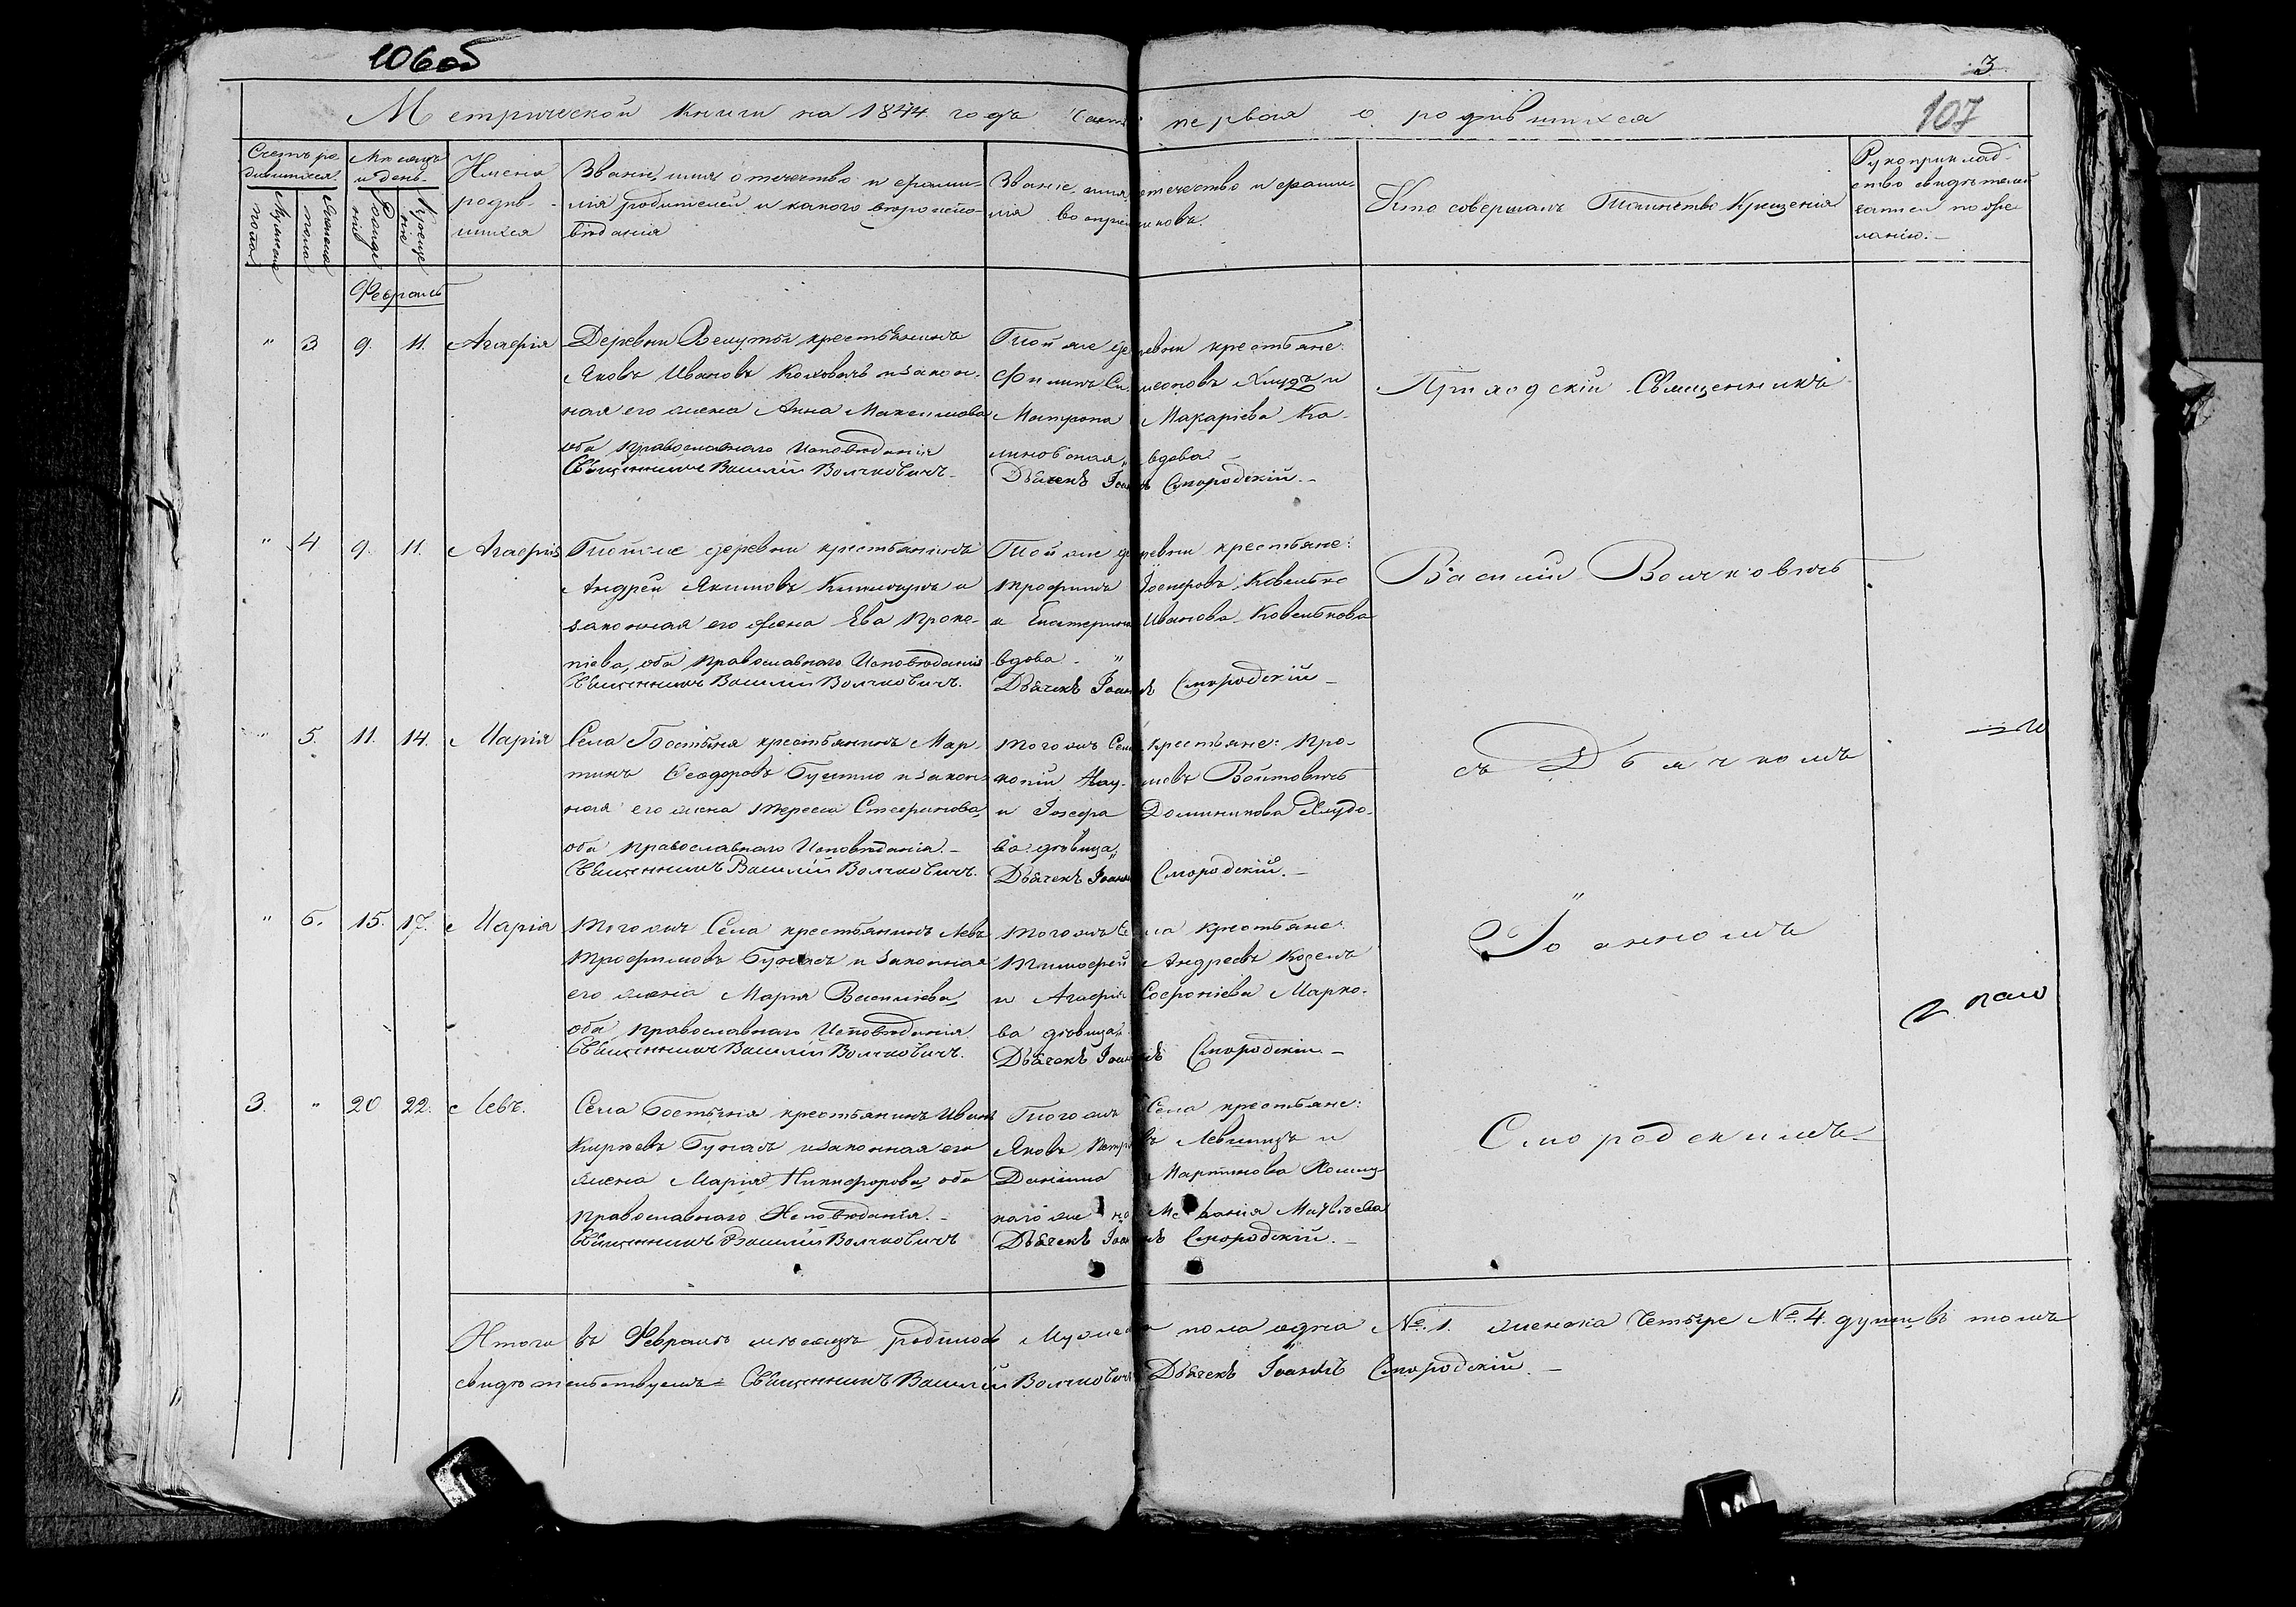 106об
3
107
Метрической книги на 1844 годъ Часть первая о родившихся
Счетъ родившихся
Мужеска пола
Женска пола
Мѣсяцъ и день
Рожденія
Крещенія
Имена родившихся
Званіе, имя отечество и фамилія родителей и какого вѣроисповѣданія
Званіе, имя, отечество и фамилія воспріемниковъ.
Кто совершалъ Таинство Крещенія
Рукоприкладство свидѣтелей записи по желанію.
Февраль
" 3 9. 11. Агафія
Деревни крестьянинъ
Яковъ Ивановъ и закон-
ная его жена Анна Максимова
оба православнаго Исповѣданія
Священникъ Василій Волчковичъ.
Той же деревни крестьяне:
Филипъ Симеоновъ Хлудъ и
Матрона Макаріева Ка-
линовская, вдова
Дьячекъ Іоаннъ Смородскій.
" 4 9. 11. Агафія
Той же деревни крестьянинъ
Андрей Якимовъ и
законная его жена Ева Проко-
піева, оба православнаго Исповѣданія
Священникъ Василій Волчковичъ.
Той же деревни крестьяне:
Трофимъ Іосифовъ Ковелько
и Екатерина Иванова Ковелькова
вдова. "
Дьячекъ Іоаннъ Смородскій
" 5. 11. 14. Марія
Села Гостыня крестьянинъ Мар-
тинъ Феодоровъ и закон-
ная его жена Тересія Стефанова,
оба православнаго Исповѣданія.
Священникъ Василій Волчковичъ.
Того жъ Села крестьяне: Про-
копій Наумовъ Войтовичъ
и Іозефа Доминикова Хлудо-
ва дѣвица,
Дьячекъ Іоаннъ Смородскій.
" 6. 15. 17. Марія
Того жъ Села крестьянинъ Левъ
Трофимовъ и законная
его жена Марія Василіева,
оба православнаго Исповѣданія.
Священникъ Василій Волчковичъ.
Того жъ Села крестьяне:
Тимофей Андреевъ Козелъ
и Агафія Софроніева Марко-
ва дѣвица,
Дьячекъ Іоаннъ Смородскій.
3. " 20 22. Левъ.
Села Гостыня крестьянинъ Иванъ
и законная его
жена Марія Никифорова, оба
православнаго Исповѣданія.
Священникъ Василій Волчковичъ
Того жъ Села крестьяне:
Яковъ и
Мартинова
Дьячекъ Іоаннъ Смородскій.
Приходскій Священникъ
Василій Волчковичъ
съ Дьячкомъ
Іоанномъ
Смородскимъ
Итого въ Февралѣ мѣсяцѣ родилось Мужеска пола одна №. 1. женска Четыре №. 4. души, въ томъ
свидѣтельствуемъ: Священникъ Василій Волчковичъ Дьячекъ Іоаннъ Смородскій.